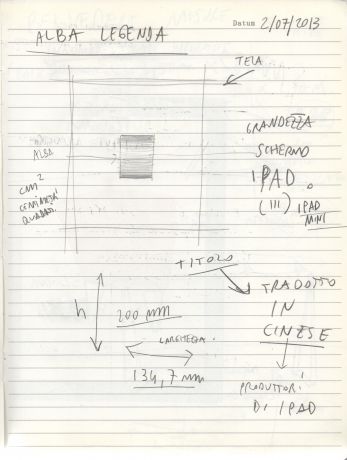 ALBA LEGENDA
Datum 2/07/2013
TELA
GRANDEZZA
SCHERMO
IPAD.
(III) IPAD
MINI
ALBA
CM²
CENTIMETRI
QUADRATI.
TITOLO
TRADOTTO
IN
CINESE
h
200 mm
LARGHEZZA.
134,7 mm
PRODUTTORI
DI IPAD